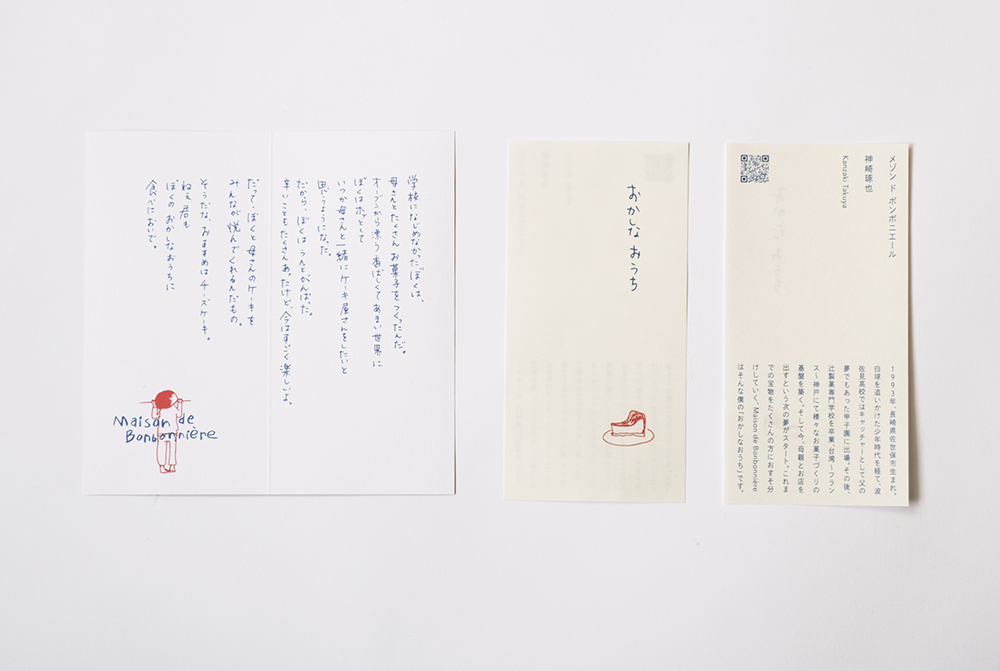 学校になじめなかったぼくは、
母さんとたくさん お菓子を つくったんだ。
オーブンから漂う 香ばしくてあまい世界に
ぼくはホッとして
いつか母さんと一緒にケーキ屋さんをしたいと
思うようになった。
だから、ぼくは うんとがんばった。
辛いことも たくさんあったけど、今はすごく楽しいよ。
だって、ぼくと母さんのケーキを
みんなが 悦んでくれるんだもの。
そうだな、おすすめは チーズケーキ。
ねえ 君も
ぼくの おかしなおうちに
食べにおいで。
Maison de
Bonbonnière
おかしな おうち
メゾン ド ボンボニエール
神崎琢也
Kanzaki Takuya
1993年、長崎県佐世保市生まれ。
白球を追いかけた少年時代を経て、波
佐見高校ではキャッチャーとして父の
夢でもあった甲子園に出場。その後、
辻製菓専門学校を卒業、台湾〜フラン
ス〜神戸にて様々なお菓子づくりの
基盤を築く。そして今、母親とお店を
出すという次の夢がスタート。これま
での宝物をたくさんの方におすそ分
けしていく、Maison de Bonbonnière
はそんな僕の「おかしなおうち」です。